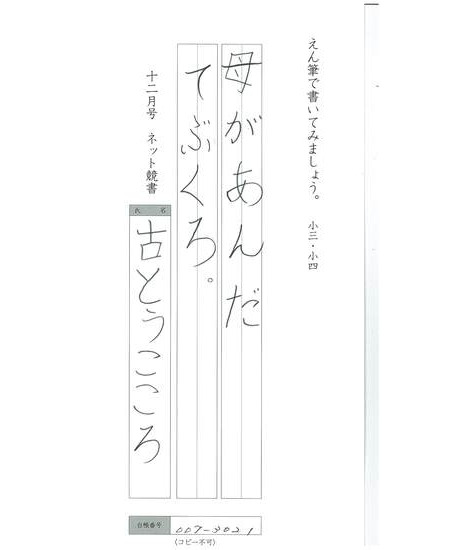 えん筆で書いてみましょう。 小三・小四
母があんだ
てぶくろ。
十二月号 ネット競書
氏 名
古とうこころ
台帳番号
007-3021
(コピー不可)